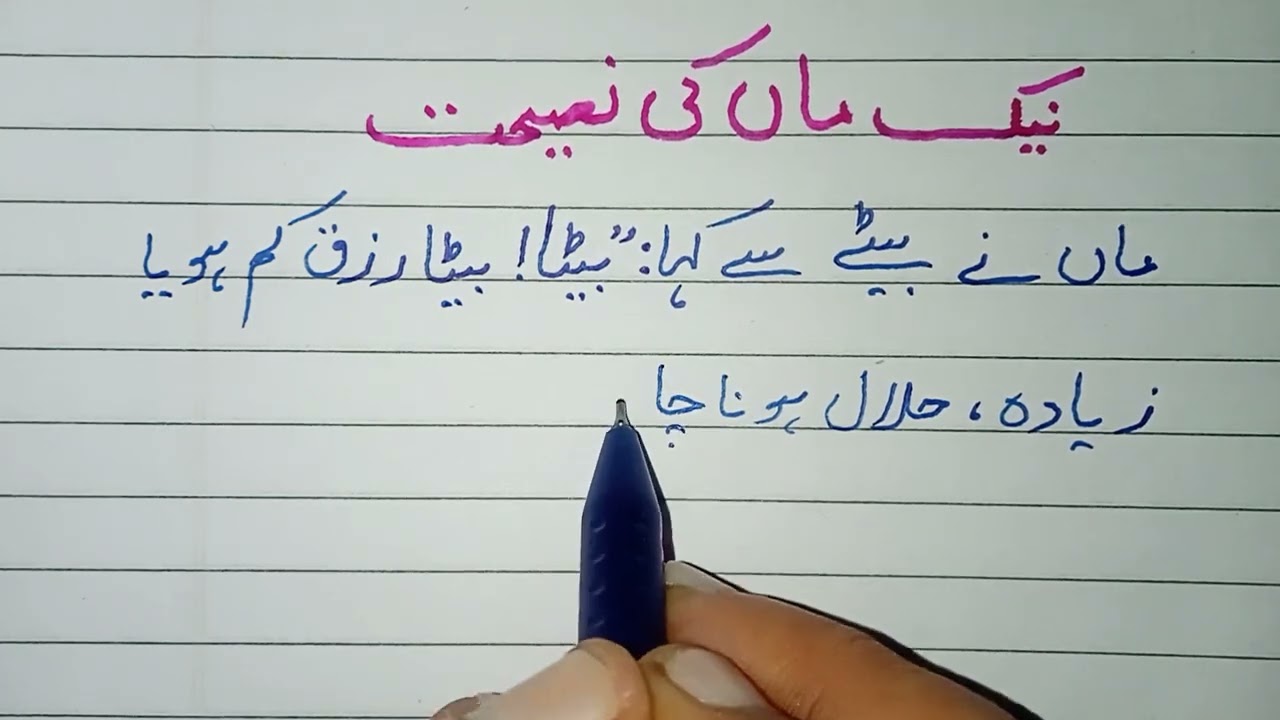 نیک ماں کی نصیحت
ماں نے بیٹے سے کہا: "بیٹا! بیٹا رزق کم ہو یا
زیادہ، حلال ہونا چا